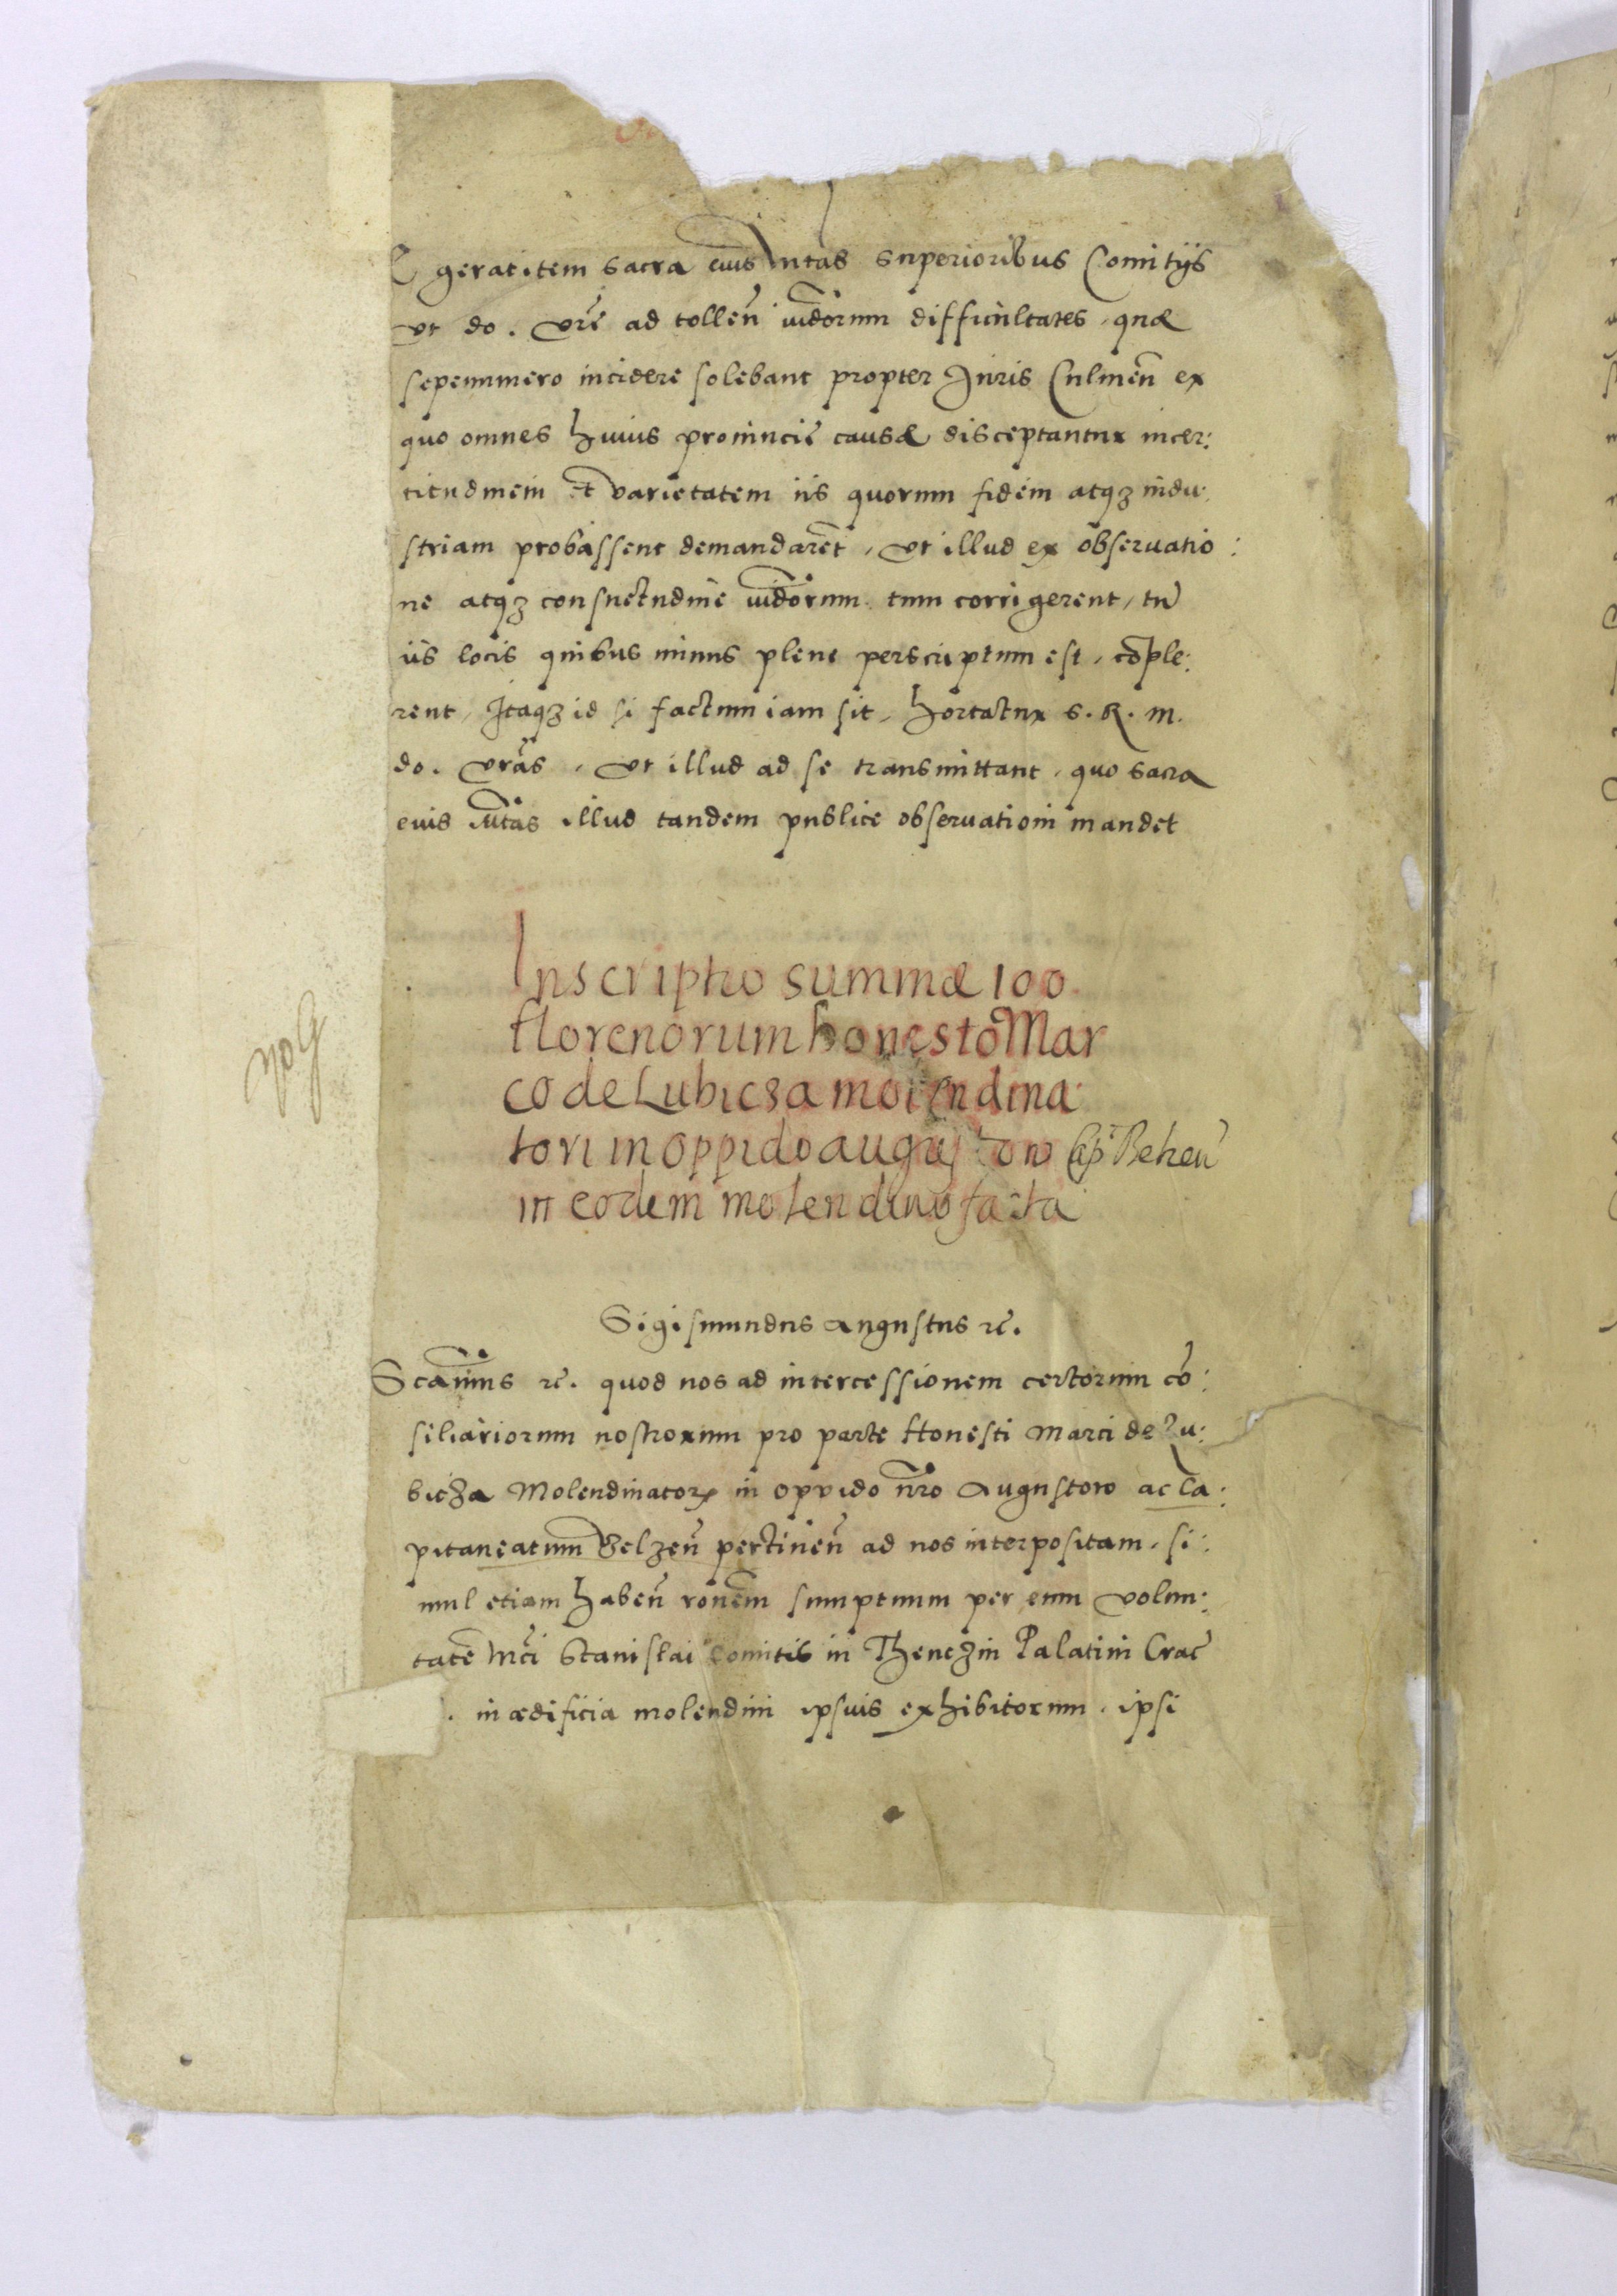 Egerat item sacra eius Mtas superioribus Comitijs
vt do. vrę ad tollen̄ iudiorum difficultates, quæ
sepenumero incidere solebant propter Juris Culmen̄ ex
quo omnes huius prouincię causæ disceptantur incer:
titudinem et varietatem iis quorum fidem atqz indu:
striam probassent demandarēt, vt illud ex obseruatio:
ne atqz consuetudinē iudiorum tum corrigerent, tū
iis locis quibus minus plene perscriptum est, cōple:
rent, Itaqz id si factum iam sit, hortatur S. R. M.
do. vrās, vt illud ad se transmittant, quo sacra
eius Mtas illud tandem publice obseruationi mandet
Inscriptio summæ 100
florenorum honesto Mar
co de Lubicza molendina:
tori in oppido augustow Cap. Belzen̄
in eodem molendino facta
Sigismundus Augustus rē.
Scām̄us rē. quod nos ad intercessionem certorum cō:
siliariorum nostrorum pro parte Honesti Marci de Lu:
bicza Molendinatorꝭ in oppido nr̄o Augustow ac Ca:
pitaneatum Belzen̄ pertinen̄ ad nos interpositam, si:
mul etiam haben̄ ronēm sumptuum per eum volun:
tatē Mci Stanislai Comitis in Thenczin Palatini Crac̄
. in ædificia molendini ipsuis exhibitorum, ipsi